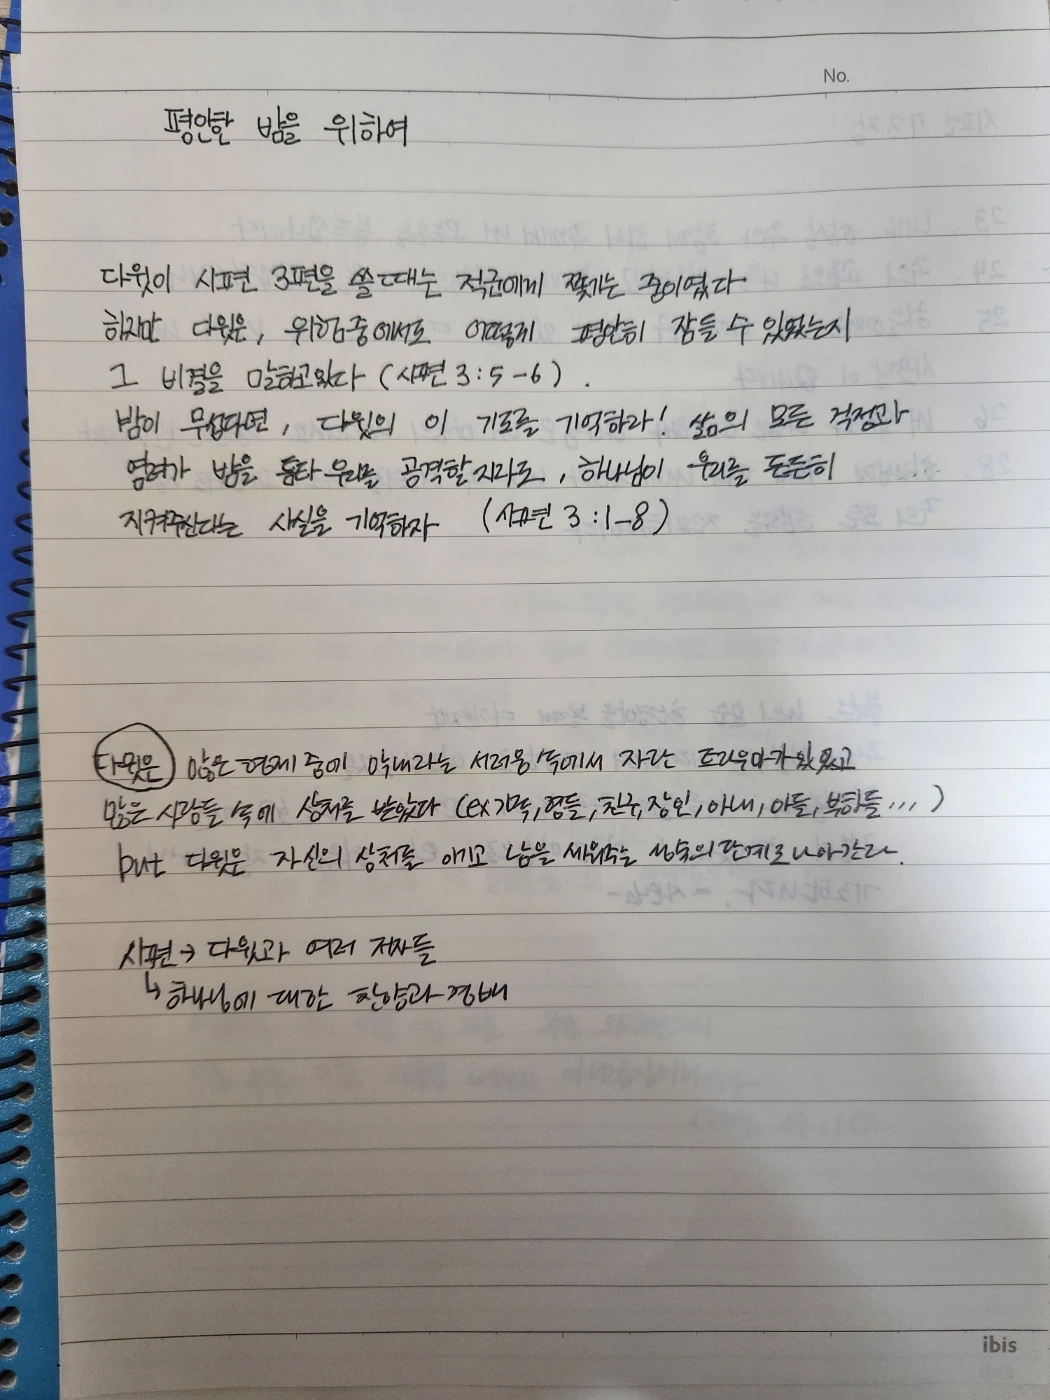 No.
평안한 밤을 위하여
다윗이 시편 3편을 쓸 때는 적군에게 쫓기는 중이였다
하지만 다윗은, 위험중에서도 어떻게 평안히 잠들 수 있었는지
그 비결을 말하고있다 (시편 3:5-6).
밤이 무섭다면, 다윗의 이 기도를 기억하라! 삶의 모든 걱정과
염려가 밤을 통타 우리를 공격할지라도, 하나님이 우리를 든든히
지켜주신다는 사실을 기억하자 (시편 3:1-8)
다윗은 많은 형제 중에 막내라는 서러움 속에서 자란 트라우마가 있었고
많은 사람들 속에 상처를 받았다 (ex 가족, 형들, 친구, 장인, 아내, 아들, 부하들...)
but 다윗은 자신의 상처를 이기고 남을 세워주는 성숙의 단계로 나아간다.
시편→ 다윗과 여러 저자들
↳ 하나님에 대한 찬양과 경배
ibis